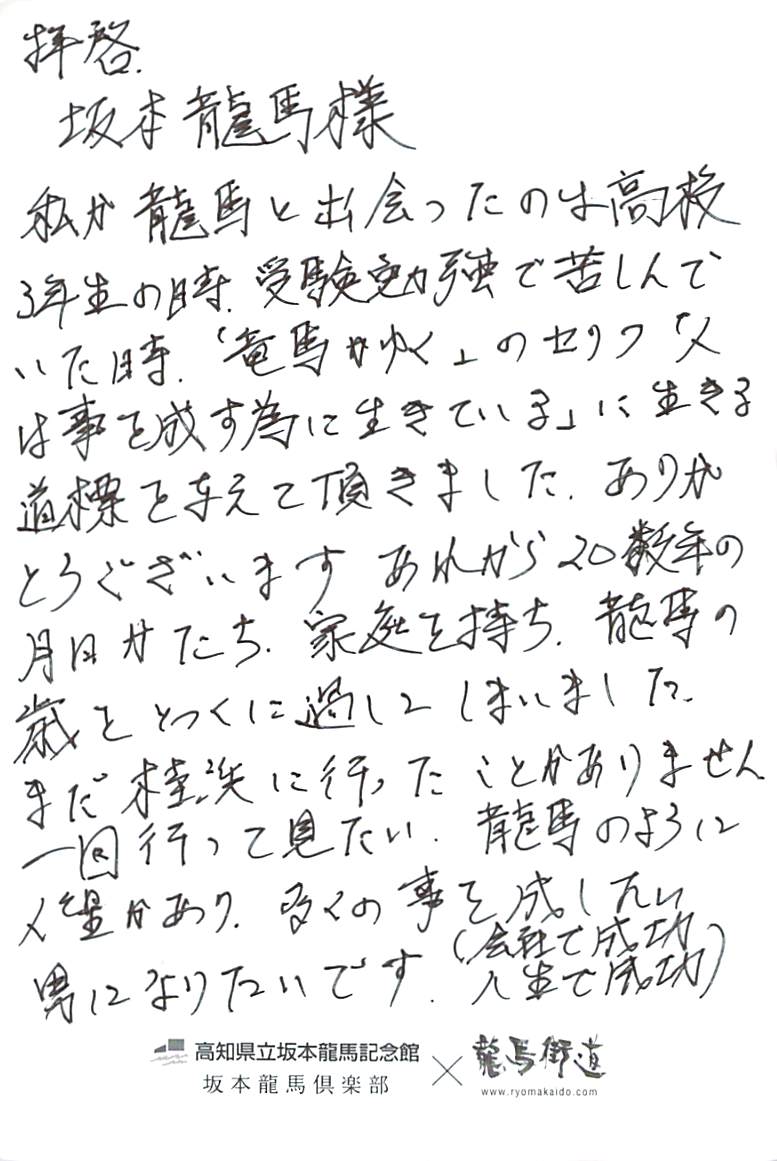 拝啓.
坂本龍馬様
私が龍馬と出会ったのは高校
3年生の時.受験勉強で苦しんで
いた時.「竜馬がゆく」のセリフ「人
は事を成す為に生きている」に生きる
道標を与えて頂きました.ありが
とうございます あれから20数年の
月日がたち.家庭を持ち.龍馬の
歳をとっくに過してしまいました.
まだ桂浜に行ったことがありません
一回行って見たい.龍馬のように
人望があり.多くの事を成したい
男になりたいです.(会社で成功
人生で成功)
高知県立坂本龍馬記念館
坂本龍馬倶楽部
×
龍馬街道
www.ryomakaido.com